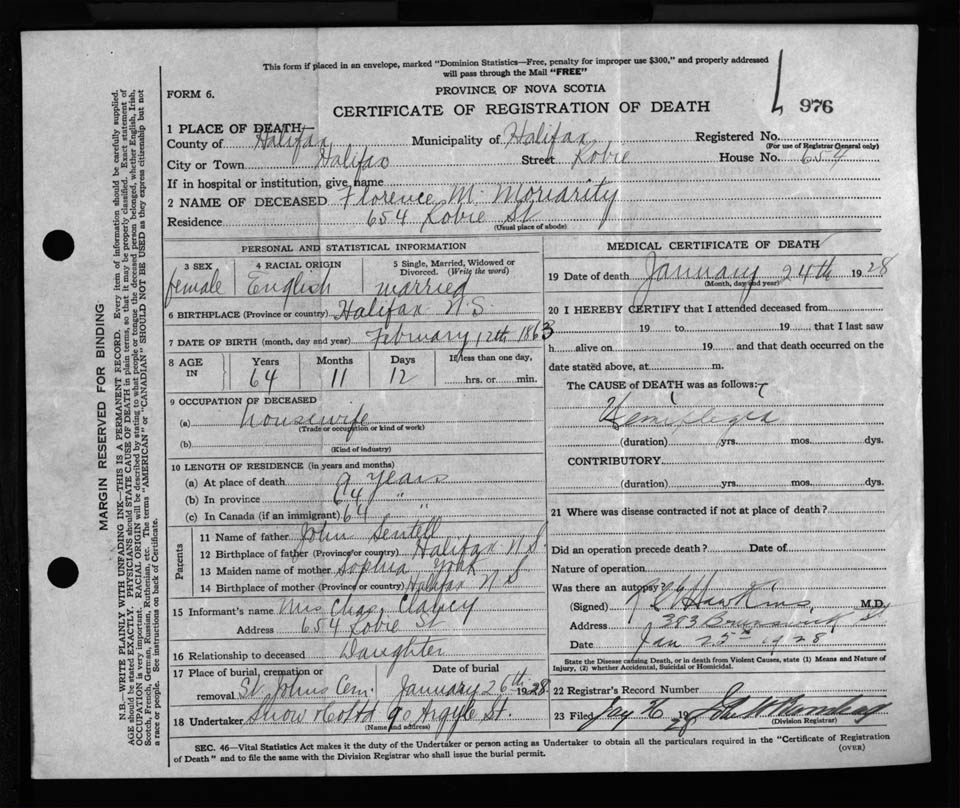 This form if placed in an envelope, marked "Dominion Statistics—Free, penalty for improper use $300," and properly addressed
will pass through the Mail "FREE"
FORM 6.
PROVINCE OF NOVA SCOTIA
CERTIFICATE OF REGISTRATION OF DEATH
976
1 PLACE OF DEATH—
County of Halifax Municipality of Halifax Registered No.
(For use of Registrar General only)
City or Town Halifax Street Robie House No. 654
If in hospital or institution, give name
2 NAME OF DECEASED Florence M. Moriarity
Residence 654 Robie St
(Usual place of abode)
PERSONAL AND STATISTICAL INFORMATION
3 SEX 4 RACIAL ORIGIN 5 Single, Married, Widowed or Divorced. (Write the word)
female English married
6 BIRTHPLACE (Province or country) Halifax N.S
7 DATE OF BIRTH (month, day and year) February 12th 1863
8 AGE IN Years Months Days If less than one day,
64 11 12 hrs. or min.
9 OCCUPATION OF DECEASED
(a) housewife
(Trade or occupation or kind of work)
(b)
(Kind of industry)
10 LENGTH OF RESIDENCE (in years and months)
(a) At place of death 9 years
(b) In province 64 "
(c) In Canada (if an immigrant) 64
Parents
11 Name of father John Sentell
12 Birthplace of father (Province or country) Halifax N.S.
13 Maiden name of mother Sophia York
14 Birthplace of mother (Province or country) Halifax N S
15 Informant's name Mrs Chas. Clancy
Address 654 Robie St
16 Relationship to deceased Daughter
17 Place of burial, cremation or removal St. Johns Cem. Date of burial January 26th 1928
18 Undertaker Snow & Co Ltd 90 Argyle St.
(Name and address)
MEDICAL CERTIFICATE OF DEATH
19 Date of death January 24th 1928
(Month, day and year)
20 I HEREBY CERTIFY that I attended deceased from
19 to 19 that I last saw
h alive on 19 and that death occurred on the
date stated above, at m.
The CAUSE of DEATH was as follows:
Hemiplegia
(duration) yrs. mos. dys.
CONTRIBUTORY
(duration) yrs. mos. dys.
21 Where was disease contracted if not at place of death?
Did an operation precede death? Date of
Nature of operation
Was there an autopsy
(Signed) Hawkins M.D.
Address 383 Brunswick St
Date Jan 25th 1928
State the Disease causing Death, or in death from Violent Causes, state (1) Means and Nature of
Injury, (2) whether Accidental, Suicidal or Homicidal.
22 Registrar's Record Number
23 Filed 26 19 28
(Division Registrar)
SEC. 46—Vital Statistics Act makes it the duty of the Undertaker or person acting as Undertaker to obtain all the particulars required in the "Certificate of Registration
of Death" and to file the same with the Division Registrar who shall issue the burial permit. (OVER)
MARGIN RESERVED FOR BINDING
N.B.—WRITE PLAINLY WITH UNFADING INK—THIS IS A PERMANENT RECORD. Every item of information should be carefully supplied.
AGE should be stated EXACTLY. PHYSICIANS should STATE CAUSE OF DEATH in plain terms, so that it may be properly classified. Exact statement of
OCCUPATION is very important. RACIAL ORIGIN will be described by stating to what people or tongue the deceased person belonged, whether English, Irish,
Scotch, French, German, Russian, Ruthenian, etc. The terms "AMERICAN" or "CANADIAN" SHOULD NOT BE USED as they express citizenship but not
a race or people. See instructions on back of Certificate.